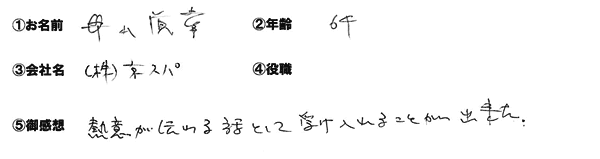 ①お名前 ②年齢 64
③会社名 (株)京スパ ④役職
⑤御感想 熱意が伝わる話として受け入れることが出来た。